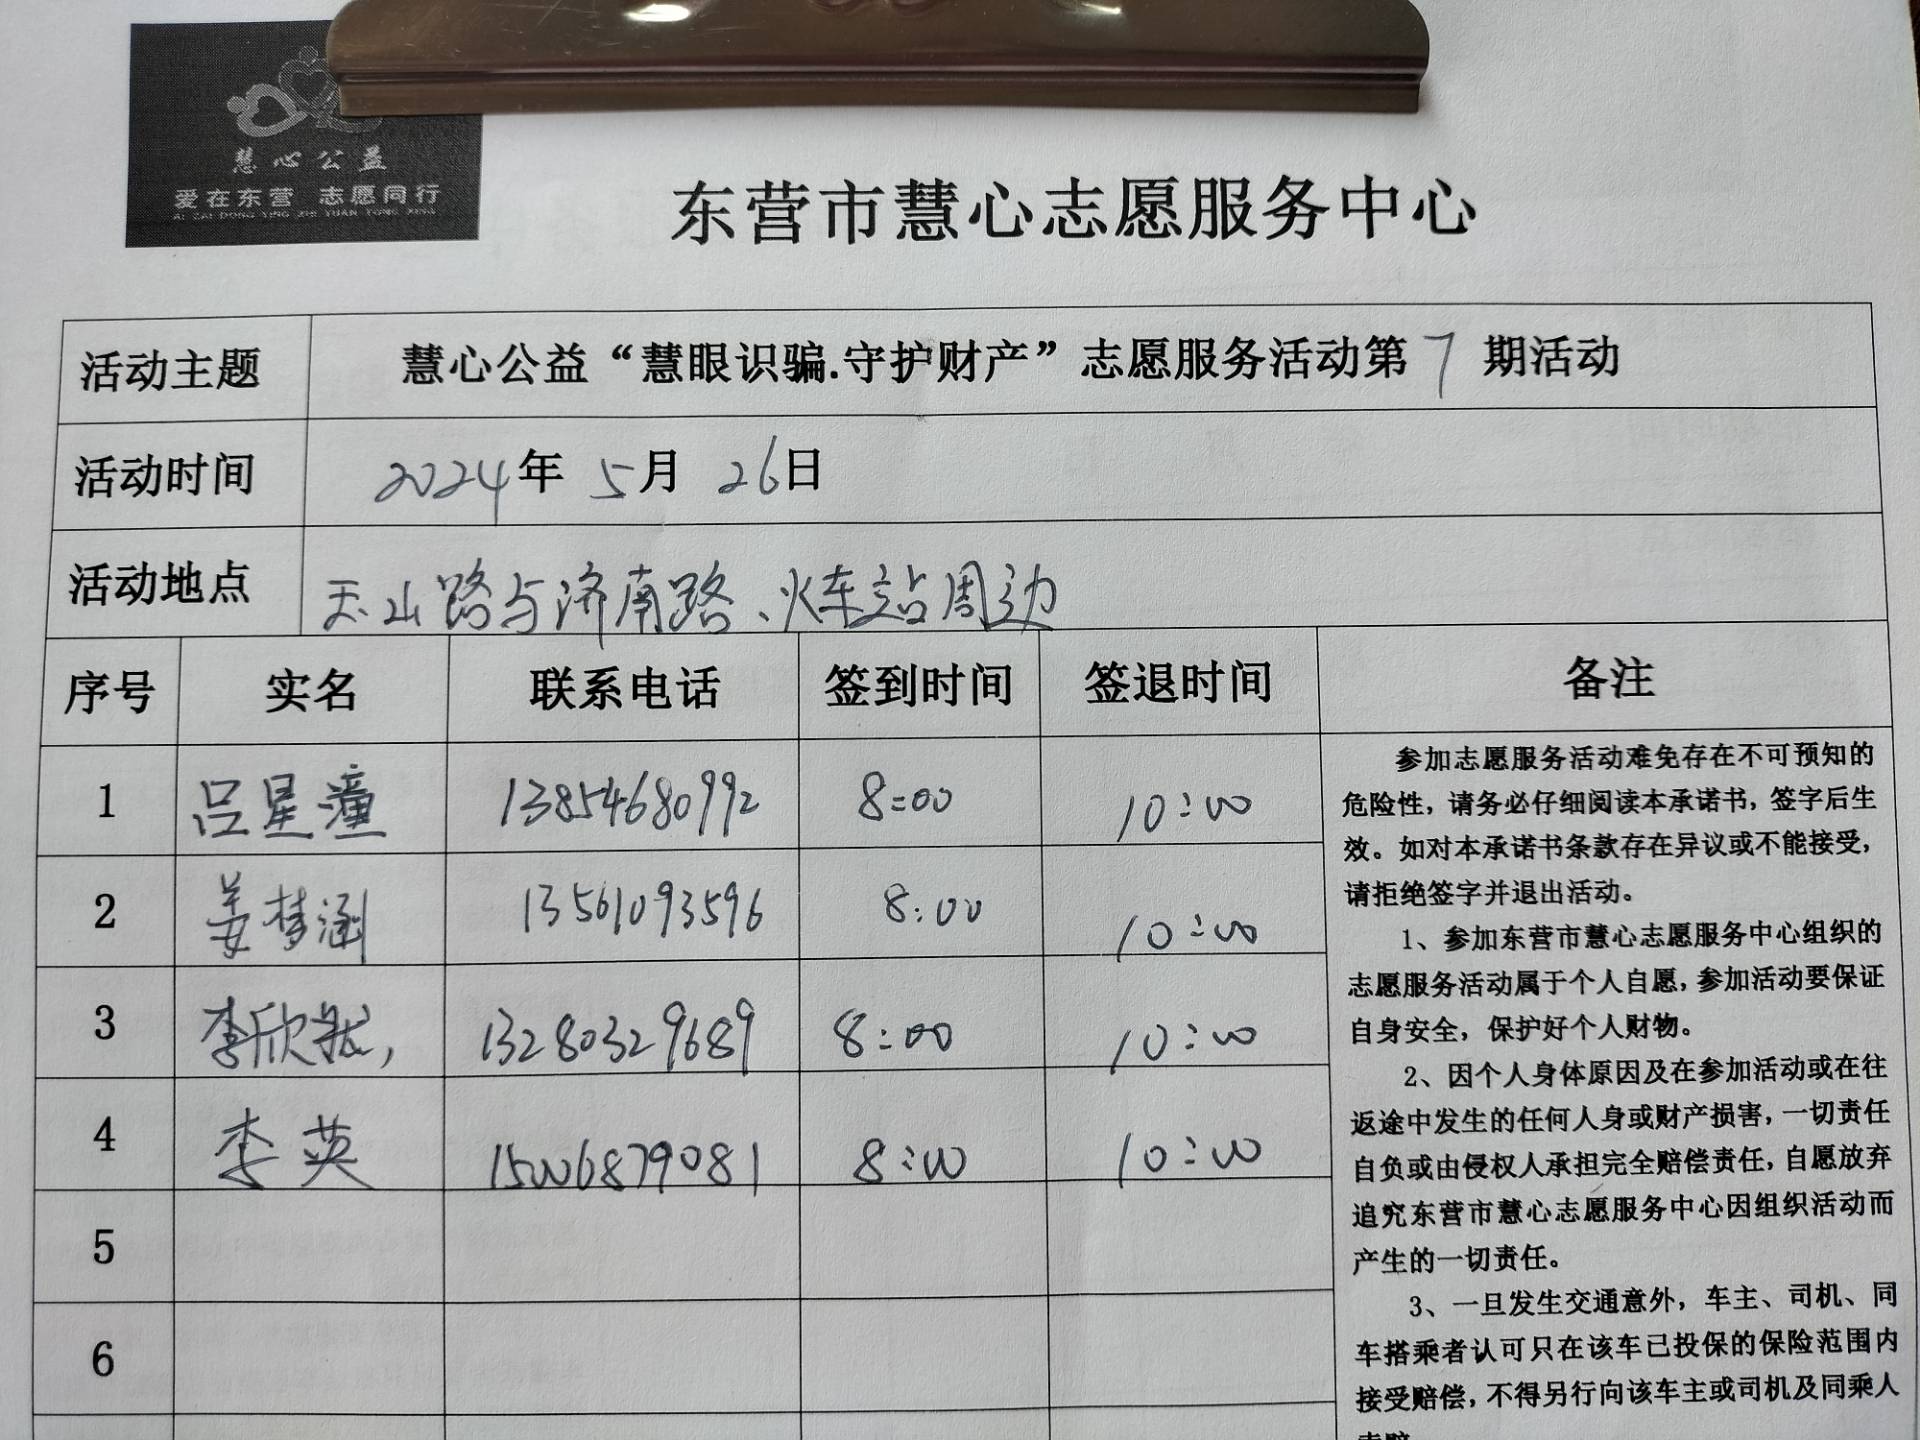 慧心公益
爱在东营 志愿同行
AI ZAI DONG YING ZHI YUAN TONG XING
东营市慧心志愿服务中心
活动主题 慧心公益“慧眼识骗.守护财产”志愿服务活动第7期活动
活动时间 2024年 5月 26日
活动地点 天山路与济南路、火车站周边
序号 实名 联系电话 签到时间 签退时间 备注
1 吕星潼 13854680992 8:00 10:00
2 姜梦涵 13561093596 8:00 10:00
3 李欣 13280329689 8:00 10:00
4 李英 15006879081 8:00 10:00
5
6
参加志愿服务活动难免存在不可预知的
危险性，请务必仔细阅读本承诺书，签字后生
效。如对本承诺书条款存在异议或不能接受，
请拒绝签字并退出活动。
1、参加东营市慧心志愿服务中心组织的
志愿服务活动属于个人自愿，参加活动要保证
自身安全，保护好个人财物。
2、因个人身体原因及在参加活动或在往
返途中发生的任何人身或财产损害，一切责任
自负或由侵权人承担完全赔偿责任，自愿放弃
追究东营市慧心志愿服务中心因组织活动而
产生的一切责任。
3、一旦发生交通意外，车主、司机、同
车搭乘者认可只在该车已投保的保险范围内
接受赔偿，不得另行向该车主或司机及同乘人